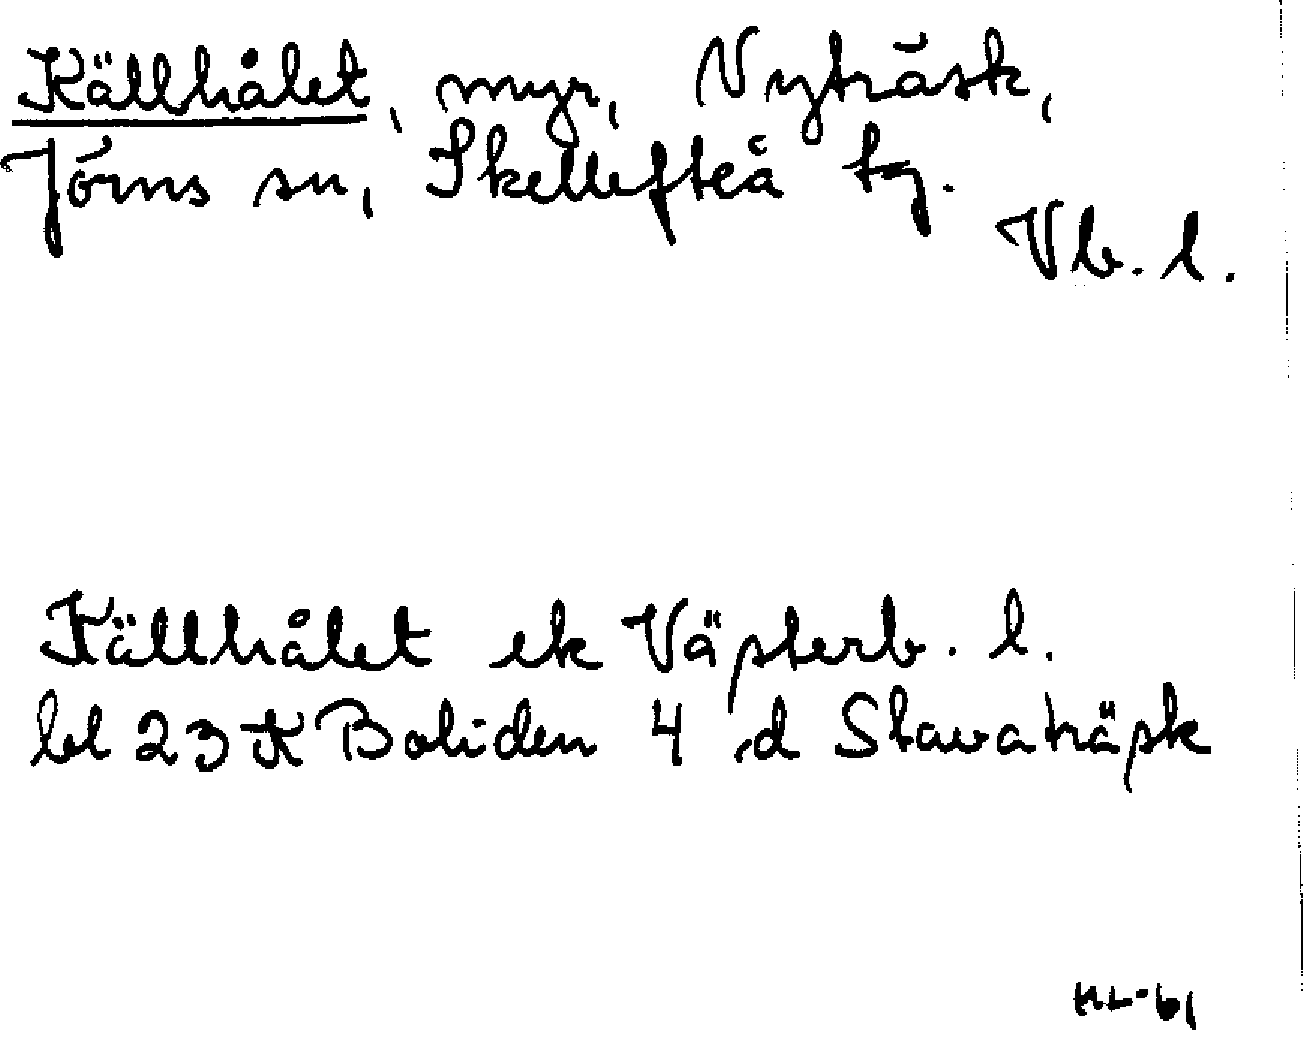 Källhålet, myr, Nyträsk,
Jörns sn, Skellefteå tg.
Vb. l.
Källhålet ek Västerb. l.
bl 23 K Boliden 4 d Slavaträsk
HL-61